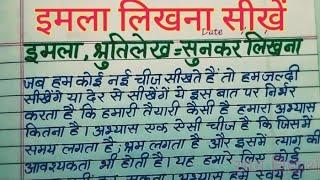 इमला लिखना सीखें
इमला, श्रुतिलेख=सुनकर लिखना
जब हम कोई नई चीज सीखते हैं तो हम जल्दी
सीखेंगे या देर से सीखेंगें ये इस बात पर निर्भर
करता है कि हमारी तैयारी कैसी है हमारा अभ्यास
कितना है। अभ्यास एक ऐसी चीज है कि जिसमें
समय लगता है; श्रम लगता है और इसमें त्याग की
आवश्यकता भी होती है। यह हमारे लिए कोई
हमें स्वयं ही